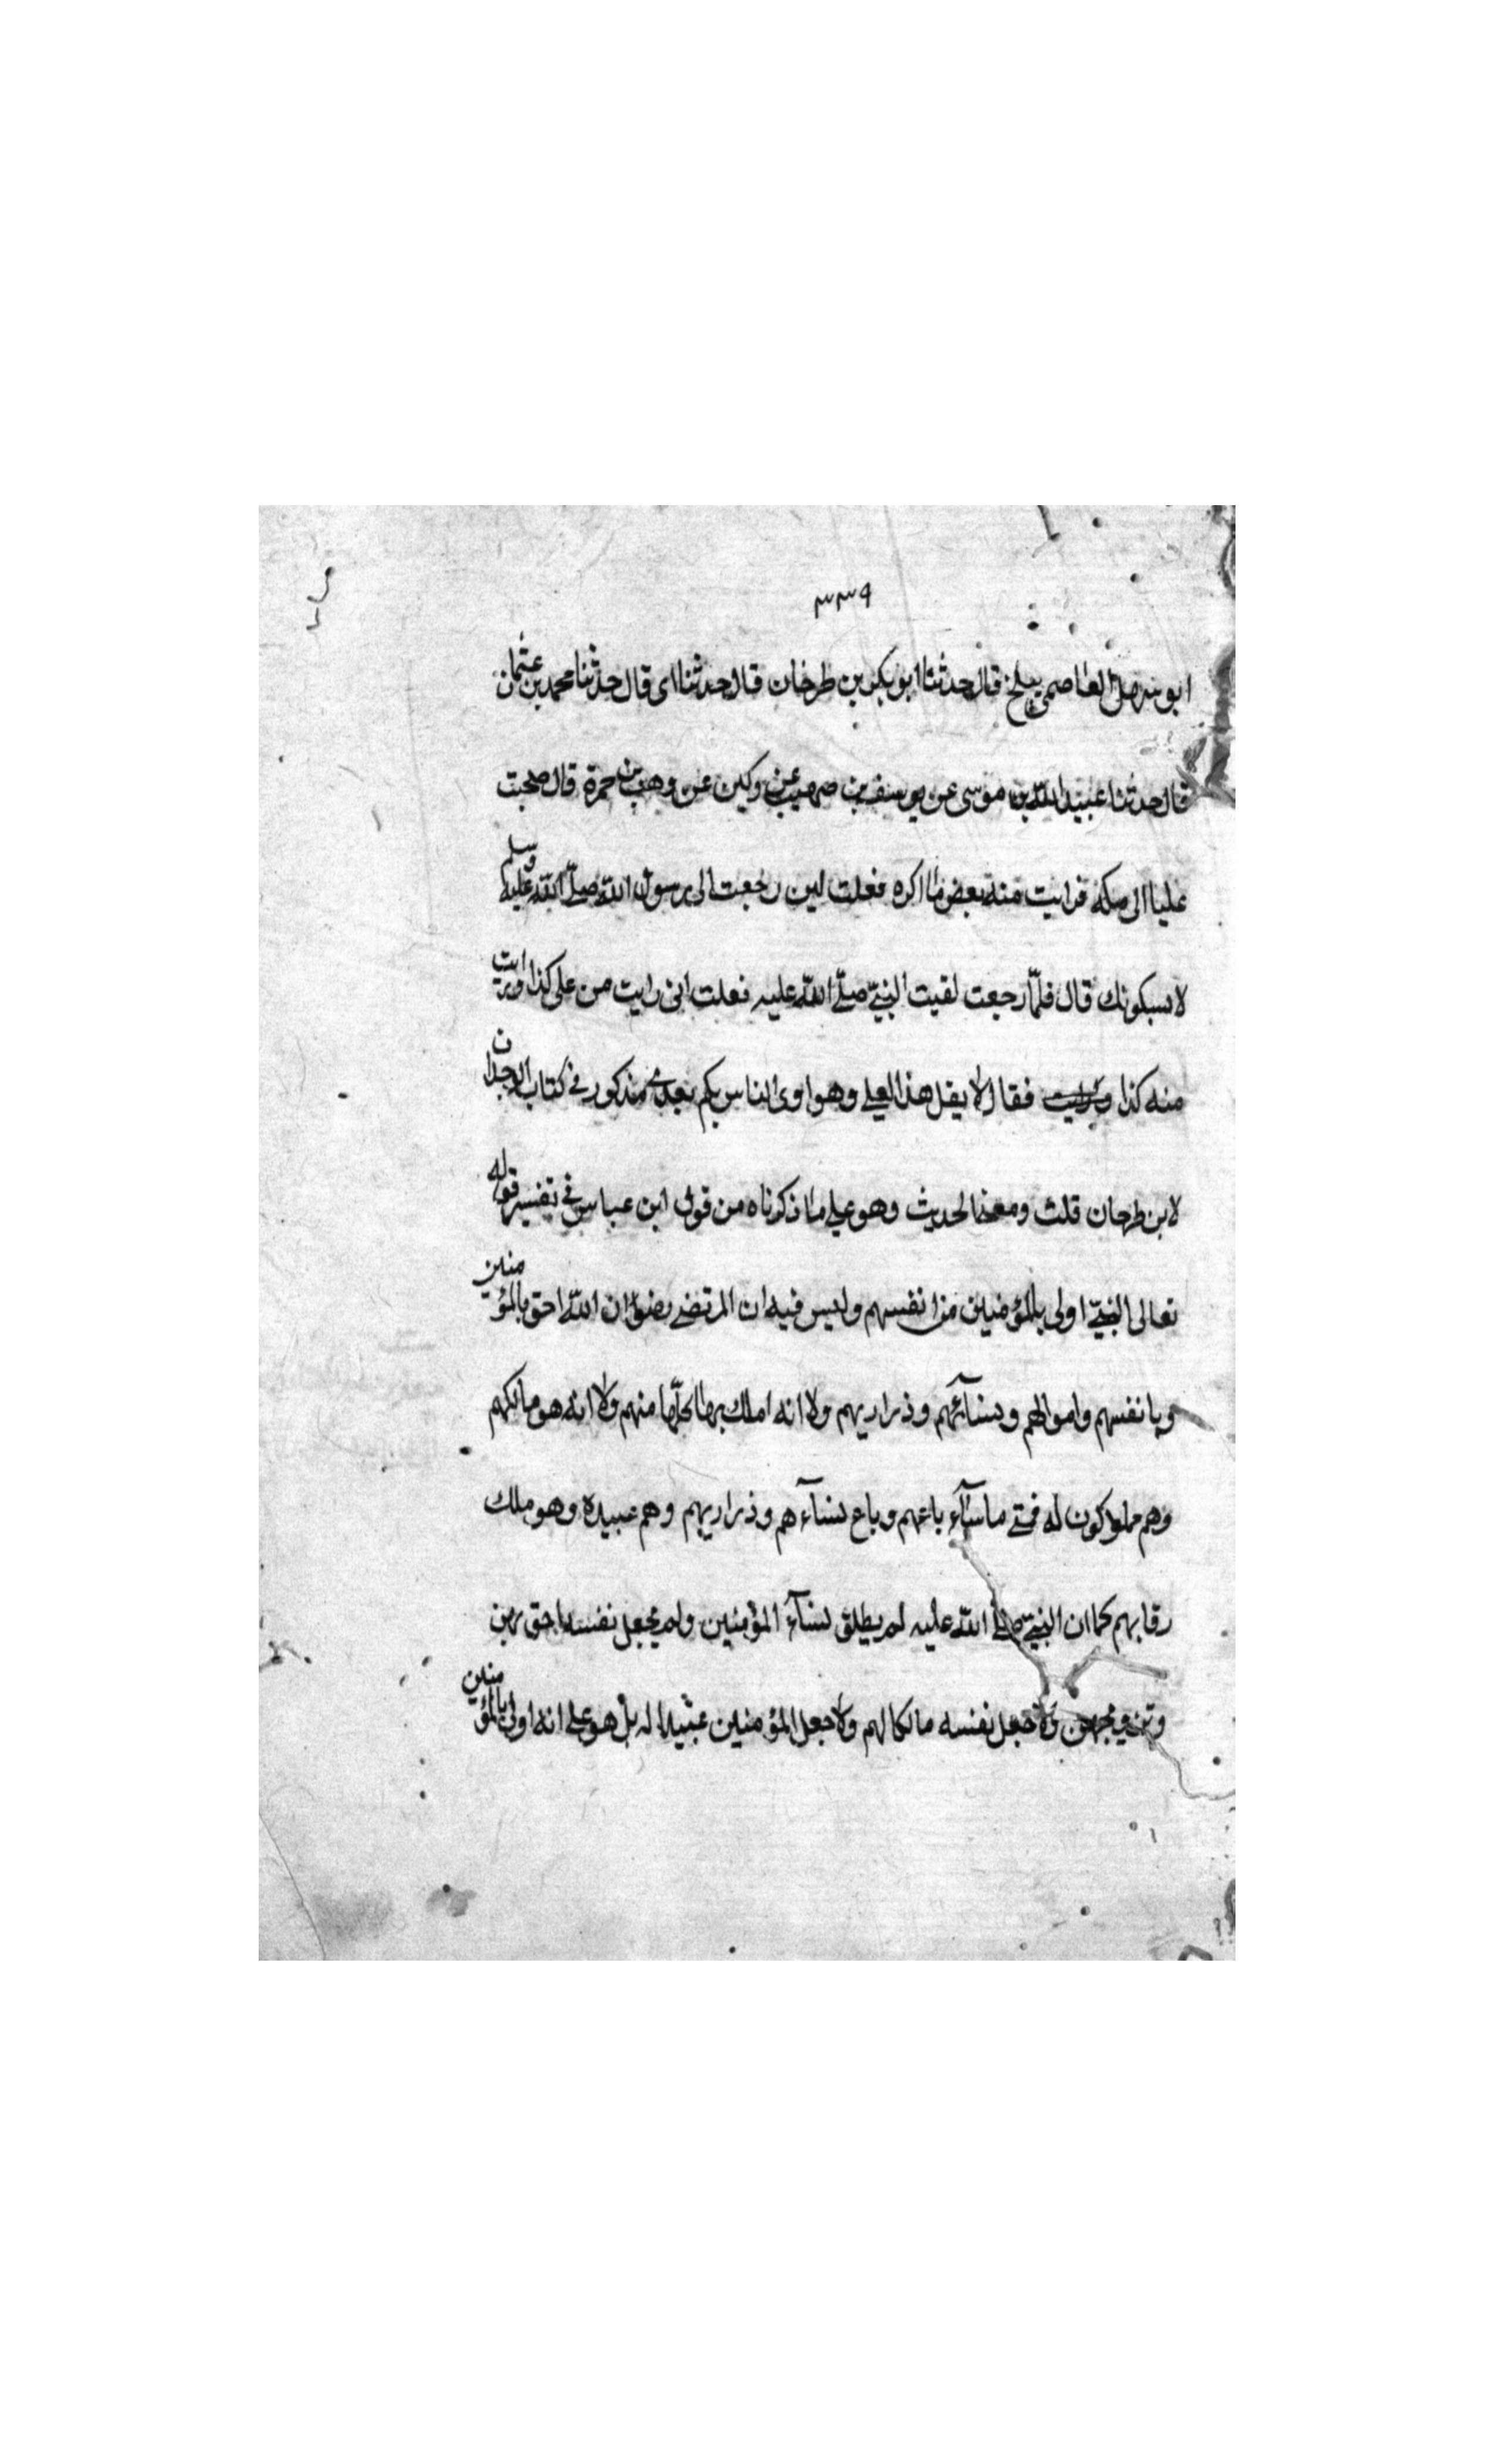 ٣٣٩
ابو سهل العاصمي ببلخ قال حدثنا ابو بكر بن طرخان قال حدثنا ابي قال حدثنا محمد بن عثمان
قال حدثنا عبيد الله بن موسى عن يوسف بن صهيب عن وكين عن وهب بن حمزة قال صحبت
عليا الى مكه فرايت منه بعض ما اكره فعلت لين رجعت الى رسول الله صلى الله عليه وسلم
لاسكونك قال فلما رجعت لقيت النبي صلى الله عليه فعلت اني رايت من علي كذا ورايت
منه كذا فقال لا يقل هذا لعلي وهو اولى الناس بكم بعدي مذكور في كتاب الوجدان
لابن طرحان قلت ومعنى الحديث وهو على ما ذكرناه من قول ابن عباس في تفسير قوله
تعالى النبي اولى بالمؤمنين من انفسهم وليس فيه ان المرتضى رضوان الله احق بالمؤمنين
وبانفسهم واموالهم ونسائهم وذراريهم ولا انه املك بها كلها منهم ولا انه هو مالكهم
وهم مملوكون له فمتى ما شاء باعهم وباع نساء هم وذراريهم وهم عبيده وهو ملك
رقابهم كما ان النبي صلى الله عليه لم يطلق نساء المؤمنين ولم يجعل نفسه احق بهن
ولا جعل نفسه مالكا لهم ولا جعل المؤمنين عبيدا له بل هو على انه اولى بالمؤمنين